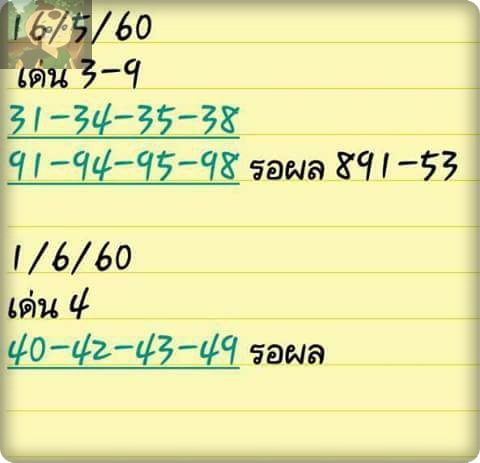 16/5/60
เด่น 3-9
31-34-35-38
91-94-95-98 รอผล 891-53
1/6/60
เด่น 4
40-42-43-49 รอผล